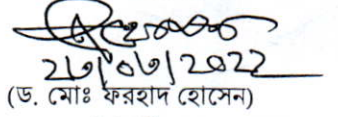 ২৩/০৩/২০২২
(ড. মোঃ ফরহাদ হোসেন)